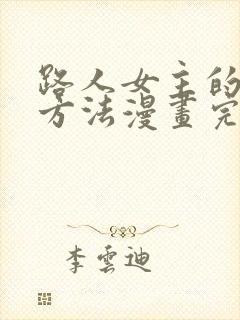 路人女主的
方法漫畫完
李雲迪